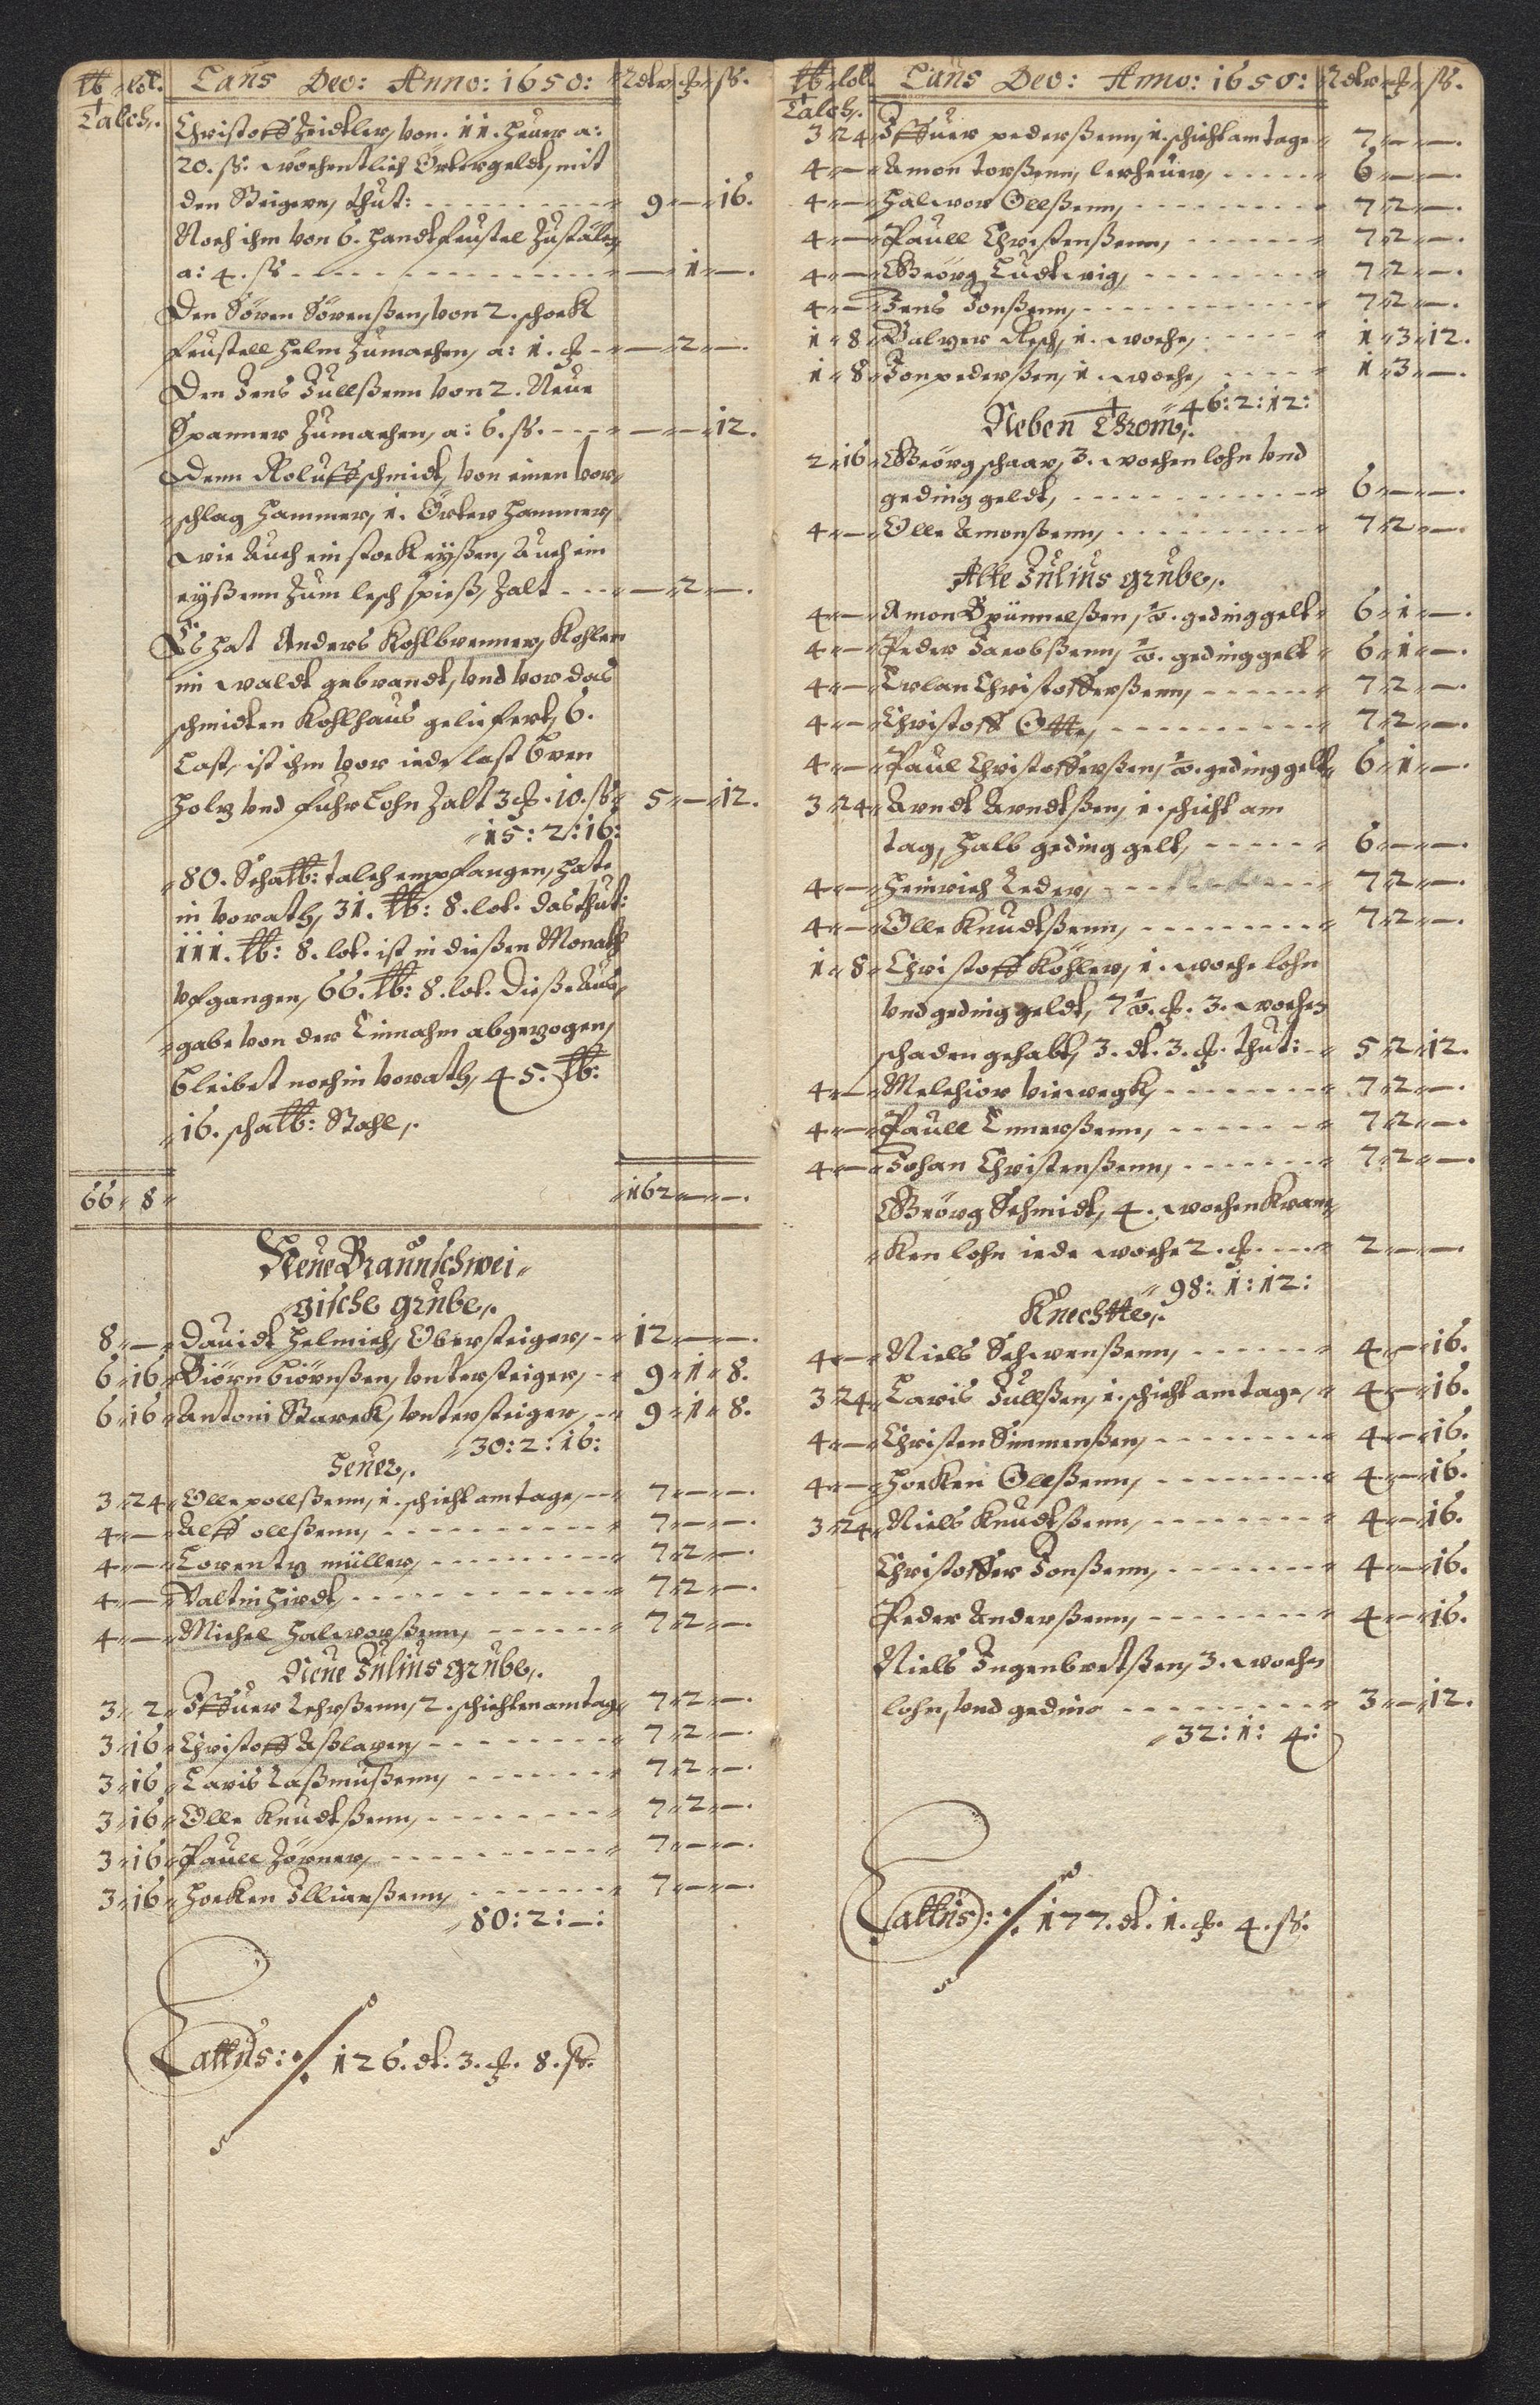 lb lot. Laus Deo: Anno: 1650: Rdlr ƶ ß.
Talch,.
Christoff Zeidtler, von. 11. Heuer a:
20. ß. wöchentlich Örtergeldt, mit
den Steigern, thut: 9 — 16.
Noch ihm von 6. Handtfeustel Zustälen
a: 4. ß — 1 —.
Den Sören Sörenßen, von 2. schock
feustell helm Zumachen, a: 1. ƶ — 2 —.
Den Jens Jullßenn von 2. Neue
Spanner Zumachen, a: 6. ß. — — 12.
Denn Roluff schmidt, von einen vor„
„schlag Hammer, 1. Örter Hammer,
wie auch ein stock eyßen, auch ein
eyßenn Zum lesch spieß, Zalt — 2 —.
Es hat Anders Kohlbrenner, Kohlen
im waldt gebrandt, vnd vor das
schmidten Kohlhaus geliefert, 6.
Last, ist ihm vor iede last bren
holz vnd fuhr Lohn Zalt 3 ƶ. 10. ß 5 — 12.
„15: 2: 16:
„80. Scha lb: talch empfangen, hate
in vorath, 31. lb: 8. lot. das thut:
111. lb: 8. lot. ist in dießen Monath
vfgangen, 66. lb: 8. lot. Dieße Aus„
„gabe von der Einnahm abgezogen,
bleibet noch in vorath, 45. lb:
„16. scha lb: Stahl,.
66 8 162 — —.
Neue Braunschwei„
„gische grube,.
8 — Dauidt Helmich, Obersteiger, 12 — —.
6 16 Biörn biörnßen, vntersteiger, 9 1 8.
6 16 Antoni Starck, vntersteiger, 9 1 8.
„30: 2: 16:
Heuer,.
3 24 Olle pollßenn, 1. schicht am tage, 7 — —.
4 — Alff ollßenn, 7 — —.
4 — Lorentz müller, 7 2 —.
4 — Valtin Hirdt, 7 2 —.
4 — Michel Halworßenn, 7 2 —.
Neue Julius grube,.
3 2 Iffuer Lehrßenn, 2. schichten am tag 7 2 —.
3 16 Christoff Aßlagen, 7 2 —.
3 16 Laris Laßmußenn, 7 2 —.
3 16 Olle Knudtßenn, 7 2 —.
3 16 Paull Zörner, 7 — —.
3 16 Hocken Illianßenn, 7 — —.
„80: 2: —:
Lattus: ./. 126. dl. 3. ƶ. 8. ß.
lb lot. Laus Deo: Anno: 1650: Rdlr ƶ ß.
Talch,.
3 24 Iffuer pederßenn, 1. schicht am tage 7 — —.
4 — Amon torßenn, lerheuer, 6 — —.
4 — Halwor Ollßenn, 7 2 —.
4 — Paull Christenßenn, 7 2 —.
4 — Geörg Ludtwig, 7 2 —.
4 — Jens Jonßenn, 7 2 —.
1 8 Balzer Resch, 1. woche, 1 3 12.
1 8 Jon pederßen, 1. woche, 1 3 —.
„46: 2: 12:
Neben Throm,.
2 16 Geörg schaar, 3. wochen lohn vnd
geding geldt, 6 — —.
4 — Olle Amonßenn, 7 2 —.
Alte Julius grube,.
4 — Amon Gunnelßen, ½. geding gelt 6 1 —.
4 — Peder Jacobßenn, ½. geding gelt 6 1 —.
4 — Erlan Christofferßenn, 7 2 —.
4 — Christoff Otte, 7 2 —.
4 — Paul Christofferßen, ½. geding gelt 6 1 —.
3 24 Arndt Arndtßen, 1. schicht am
tag, halb geding gelt, 6 — —.
4 — Heinrich Leder, 7 2 —.
4 — Olle Knudtßenn, 7 2 —.
1 8 Christoff Köhler, 1. woche lohn
vnd geding geldt, 7 ½. ƶ. 3. wochen
schaden gehabt, 3. dl. 3. ƶ. thut: 5 2 12.
4 — Melchior Viewegk, 7 2 —.
4 — Paull Ennerßenn, 7 2 —.
4 — Johan Christenßenn, 7 2 —.
Geörg Schmidt, 4. wochen Kran„
„Ken lohn iede woche 2. ƶ. 2 — —.
„98: 1: 12:
Knechtte,.
4 — Niels Schwenßenn, 4 — 16.
3 24 Laris Jullßen, 1. schicht am tage, 4 — 16.
4 — Christen Simmenßen, 4 — 16.
4 — Hocken Ollßenn, 4 — 16.
3 24 Niels Knudtßenn, 4 — 16.
Christoffer Jonßenn, 4 — 16.
Peder Anderßenn, 4 — 16.
Niels Ingenbretßen, 3. wochen
lohn, vnd geding 3 — 12.
„32: 1: 4:
Lattus: ./. 177. dl. 1. ƶ. 4. ß.